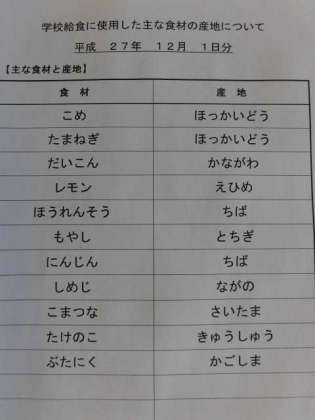 学校給食に使用した主な食材の産地について
平成　27年　12月　1日分
【主な食材と産地】
食　材　産　地
こめ　ほっかいどう
たまねぎ　ほっかいどう
だいこん　かながわ
レモン　えひめ
ほうれんそう　ちば
もやし　とちぎ
にんじん　ちば
しめじ　ながの
こまつな　さいたま
たけのこ　きゅうしゅう
ぶたにく　かごしま